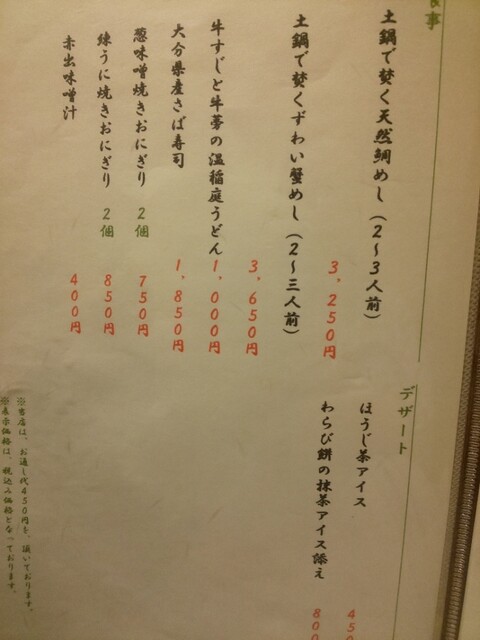 食事
土鍋で焚く天然鯛めし(2〜3人前)
3,250円
土鍋で焚くずわい蟹めし(2〜三人前)
3,650円
牛すじと牛蒡の温稲庭うどん
1,000円
大分県産さば寿司
1,850円
葱味噌焼きおにぎり 2個
750円
練うに焼きおにぎり 2個
850円
赤出味噌汁
400円
デザート
ほうじ茶アイス
450
わらび餅の抹茶アイス添え
800
※当店は、お通し代450円を、頂いております。
※表示価格は、税込み価格となっております。